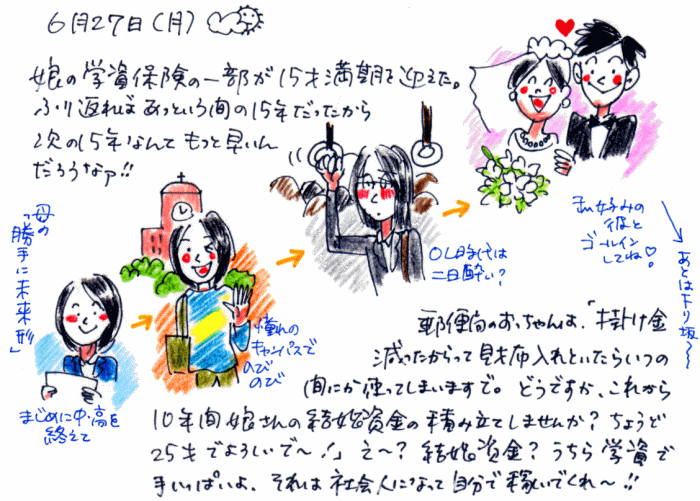 6月27日(月)
娘の学資保険の一部が15才満期を迎えた。
ふり返ればあっという間の15年だったから
次の15年なんてもっと早いん
だろうなァ!!
母の
「勝手に未来形」
まじめに中・高を
終えて
憧れの
キャンパスで
のび
のび
OL時代は
二日酔い?
私好みの
彼と
ゴールイン
してね♡
あとは下り坂〜〜
郵便局のおっちゃんは、「掛け金
減ったからって財布入れといたらいつの
間にか使ってしまいますで。どうですか、これから
10年間娘さんの結婚資金の積み立てしませんか?ちょうど
25才でよろしいで〜!」え〜?結婚資金?うちら学資で
手いっぱいよ、それは社会人になって自分で稼いでくれ〜!!